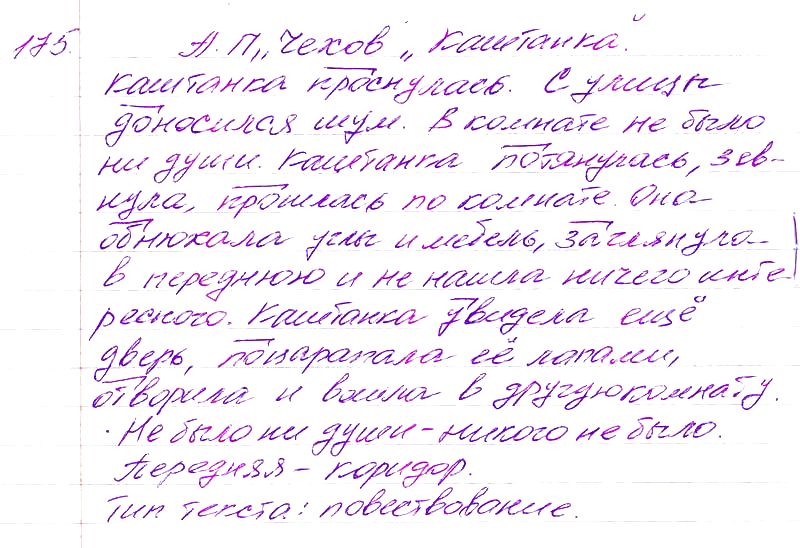 175. А. П,, Чехов „ Каштанка".
Каштанка проснулась. С улицы
доносился шум. В комнате не было
ни души. Каштанка потянулась, зев-
нула, прошлась по комнате. Она
обнюхала углы и мебель, заглянула
в переднюю и не нашла ничего инте
ресного. Каштанка увидела ещё
дверь, поцарапала её лапами,
отворила и вошла в другую комнату.
Не было ни души - никого не было.
Передняя - коридор.
Тип текста: повествование.